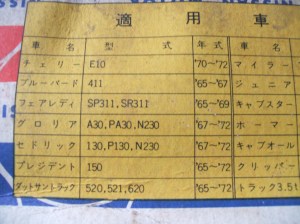 適用車
車名 型式 年式 車名
チェリー E10 '70~'72 マイラー
ブルーバード 411 '65~'67 ジュニア
フェアレディ SP311,SR311 '65~'69 キャブスター
グロリア A30,PA30,N230 '67~'72 ホーマー
セドリック 130,P130,N230 '67~'72 キャブオール
プレジデント 150 '65~'72 クリッパー
ダットサントラック 520,521,620 '65~'72 トラック3.5t